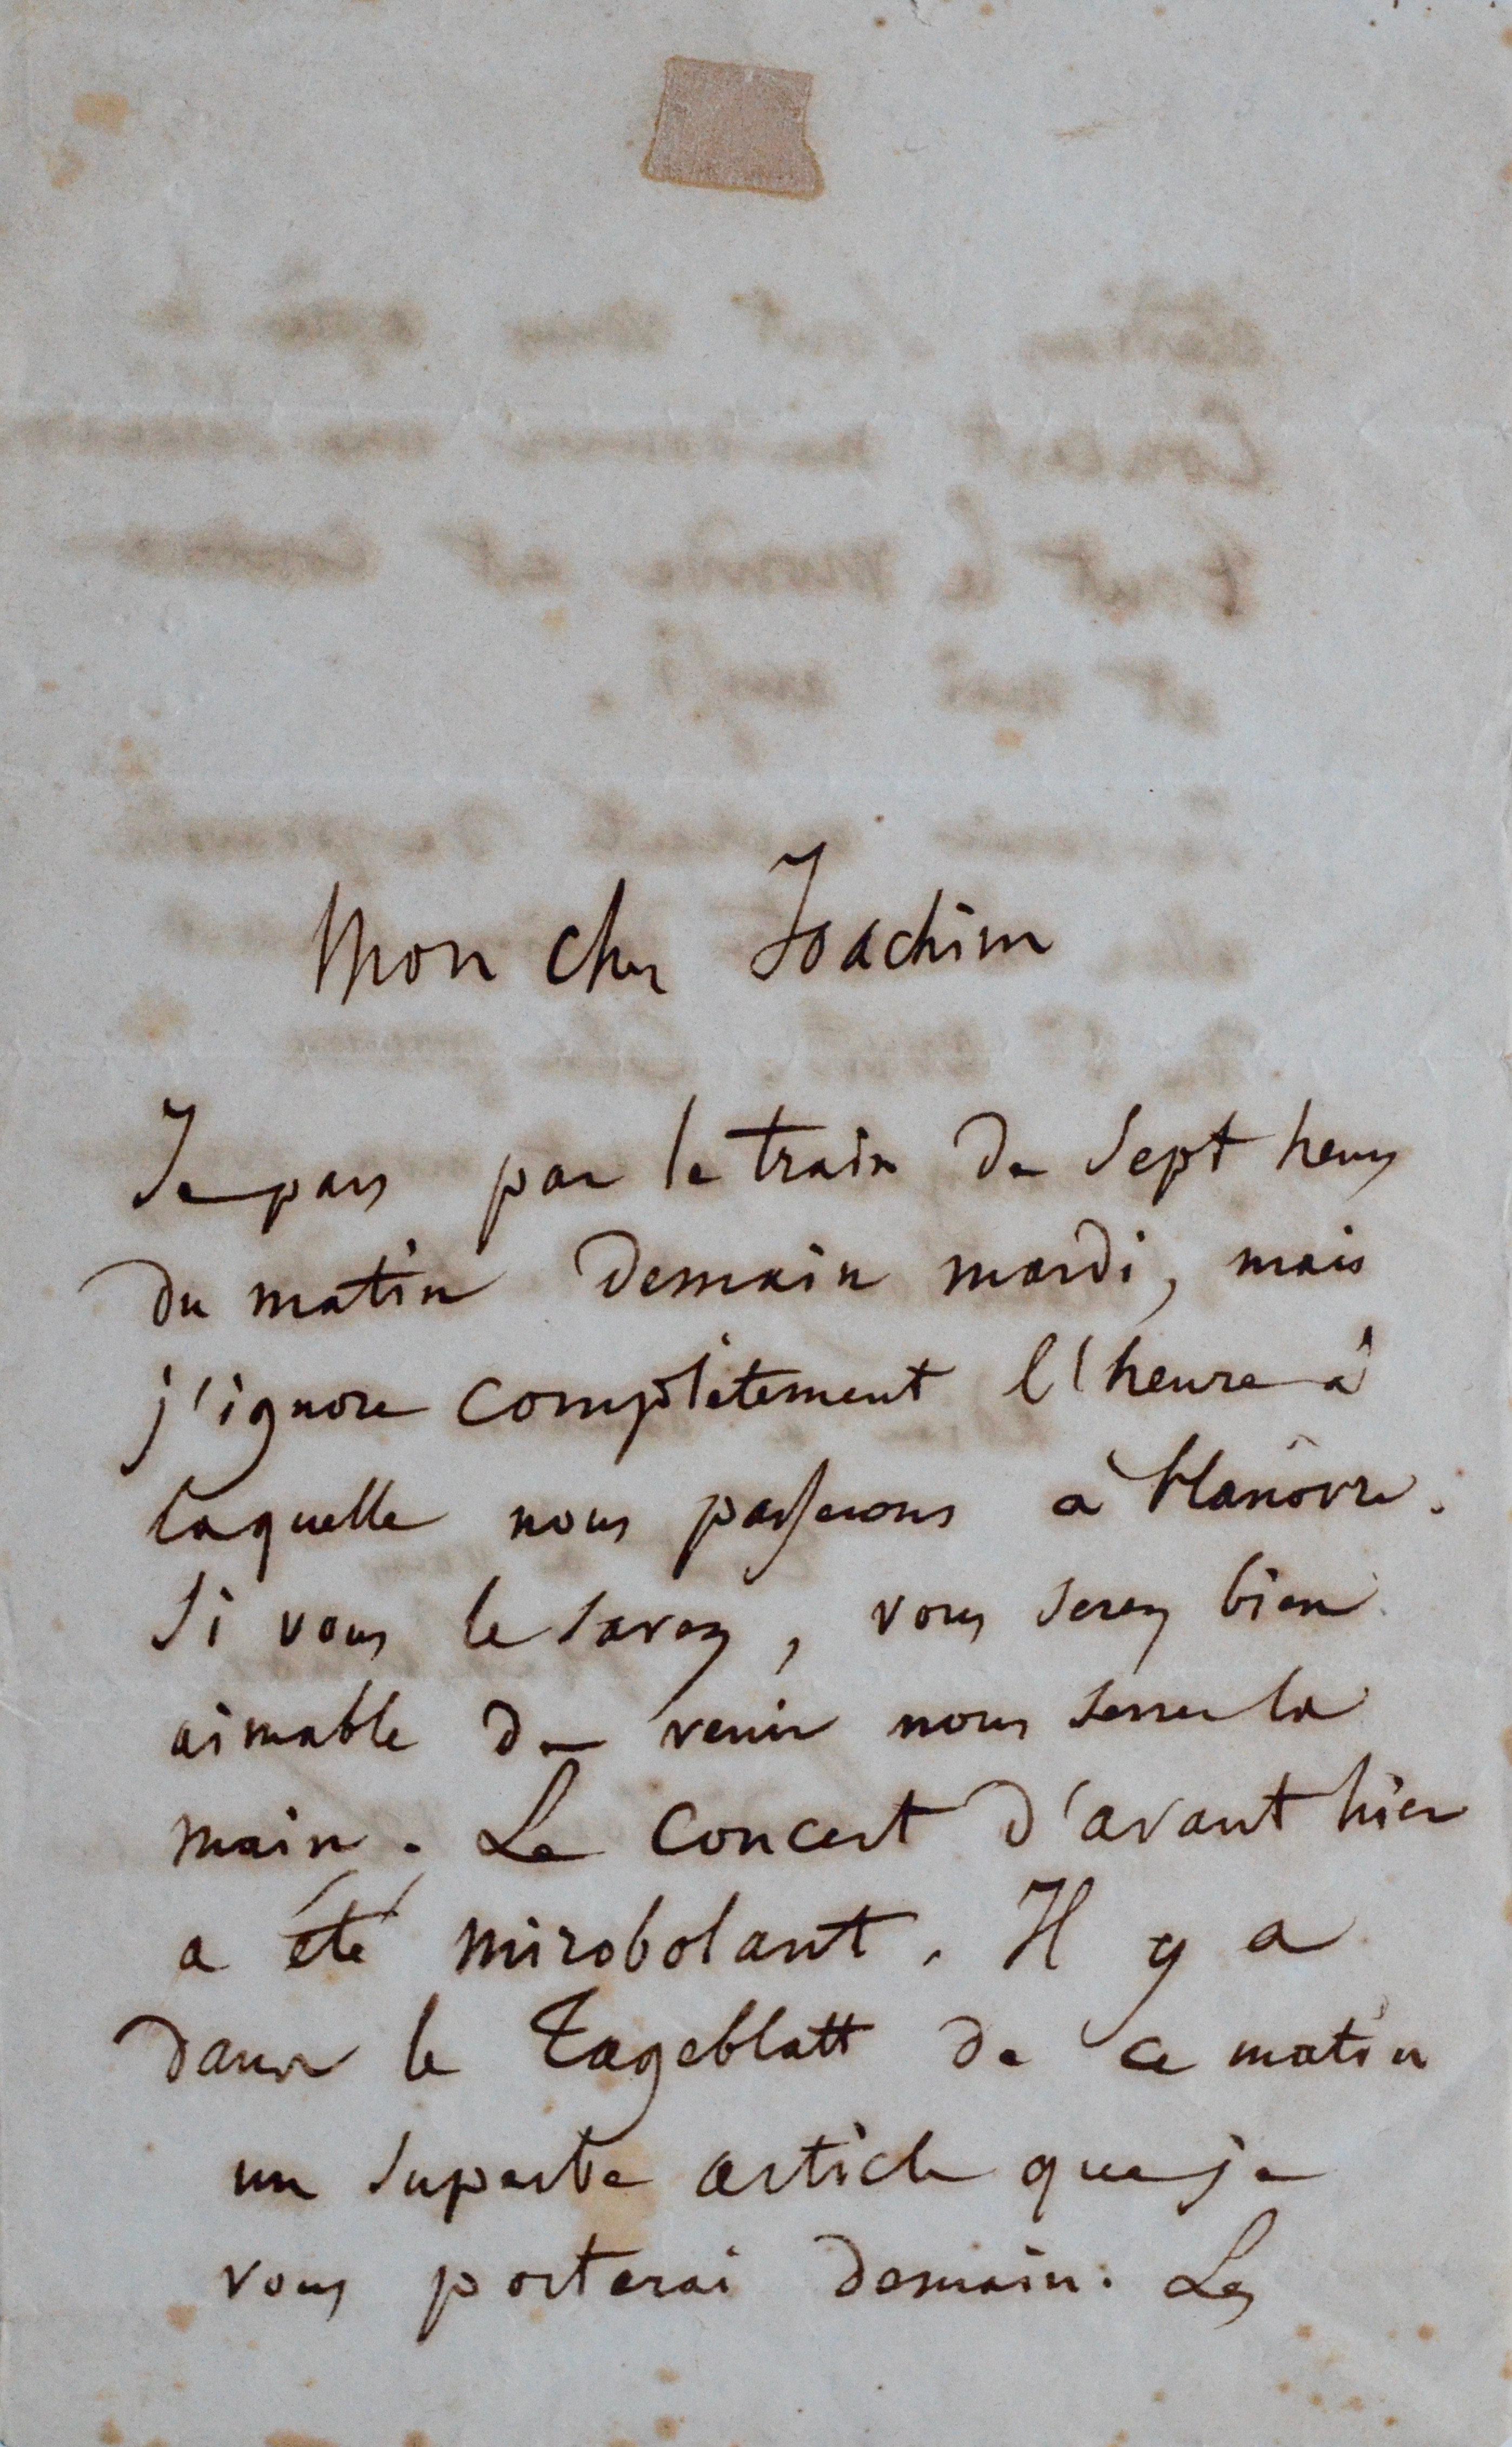 Mon cher Joachim
Je pars par le train de sept heures
du matin demain mardi, mais
j'ignore complètement l'heure à
laquelle nous passerons à Hanôvre.
Si vous le savez, vous serez bien
aimable de venir nous serrer la
main. Le concert d'avant hier
a été mirobolant. Il y a
dans le Tageblatt de ce matin
un superbe article que je
vous porterai demain. Les